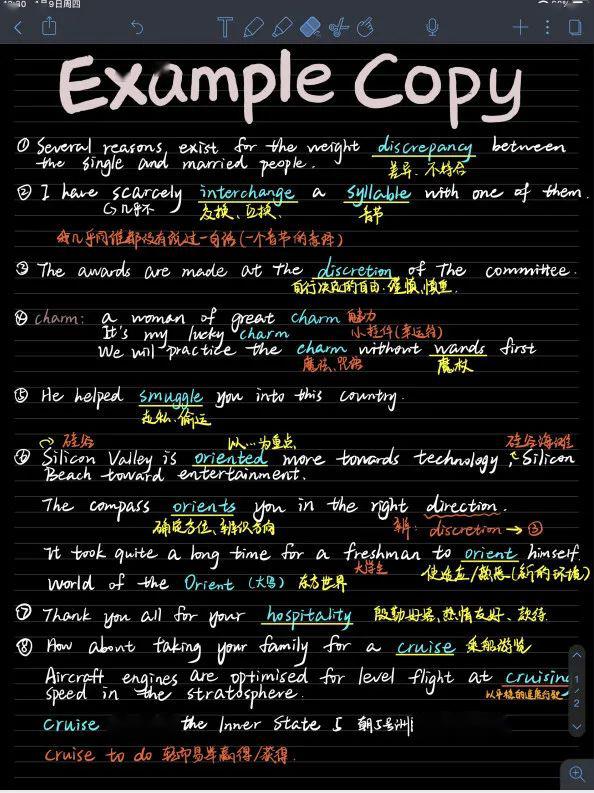 1月9日周四
Example Copy
① Several reasons, exist for the weight discrepancy between
the single and married people. 差异、不符合
② I have scarcely interchange a syllable with one of them.
几乎不 互换、 音节
我几乎同谁都没有说过一句话(一个音节的意译)
③ The awards are made at the discretion of the committee.
自行决定的自由、谨慎、慎重.
④ charm: a woman of great charm 魅力
It's my lucky charm 小挂件(幸运符)
We will practice the charm without wands first
魔法、咒语 魔杖
⑤ He helped smuggle you into this country.
走私、偷运
硅谷 以…为重点 硅谷海滩
⑥ Silicon Valley is oriented more towards technology, Silicon
Beach toward entertainment.
The compass orients you in the right direction.
确定方位、辨识方向 辨: discretion → ③
It took quite a long time for a freshman to orient himself.
大学生 使适应/熟悉(新的环境)
World of the Orient (大写) 东方世界
⑦ Thank you all for your hospitality 殷勤好客、热情友好、款待.
⑧ How about taking your family for a cruise 乘船游览
Aircraft engines are optimised for level flight at cruising
speed in the stratosphere. 以平稳的速度行驶
cruise the Inner State 5 朝5号洲
cruise to do 轻而易举赢得/获得.
1
2